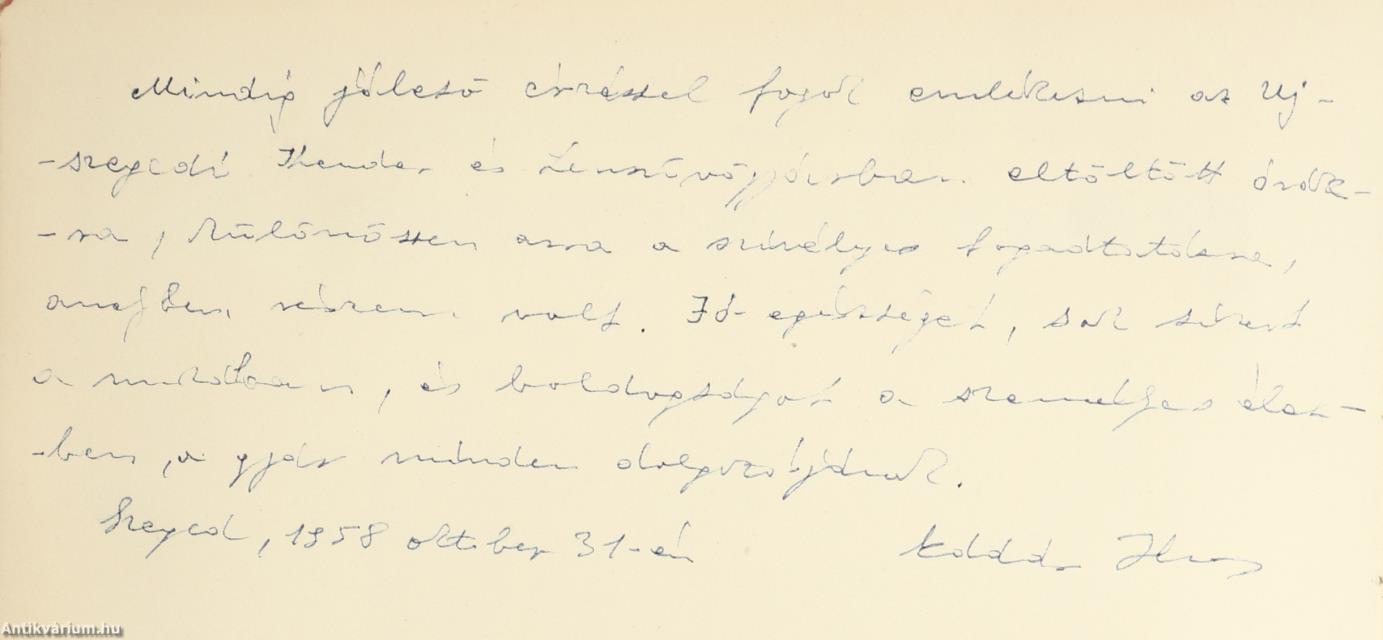 Mindig jóleső érzéssel fogok emlékezni az Uj-
-szegedi Kender és Lenszövőgyárban eltöltött órák-
-ra, különössen arra a szivélyes fogadtatásra,
amejben részem volt. Jó egésséget, sok sikert
a munkában, és boldogságot a személyes élet-
-ben, a gyár minden dolgozójának.
Szeged, 1958 oktober 31-én Kádár János
Antikvárium.hu